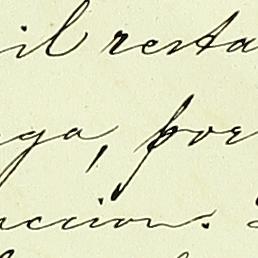 il resta
ga, por
accion.